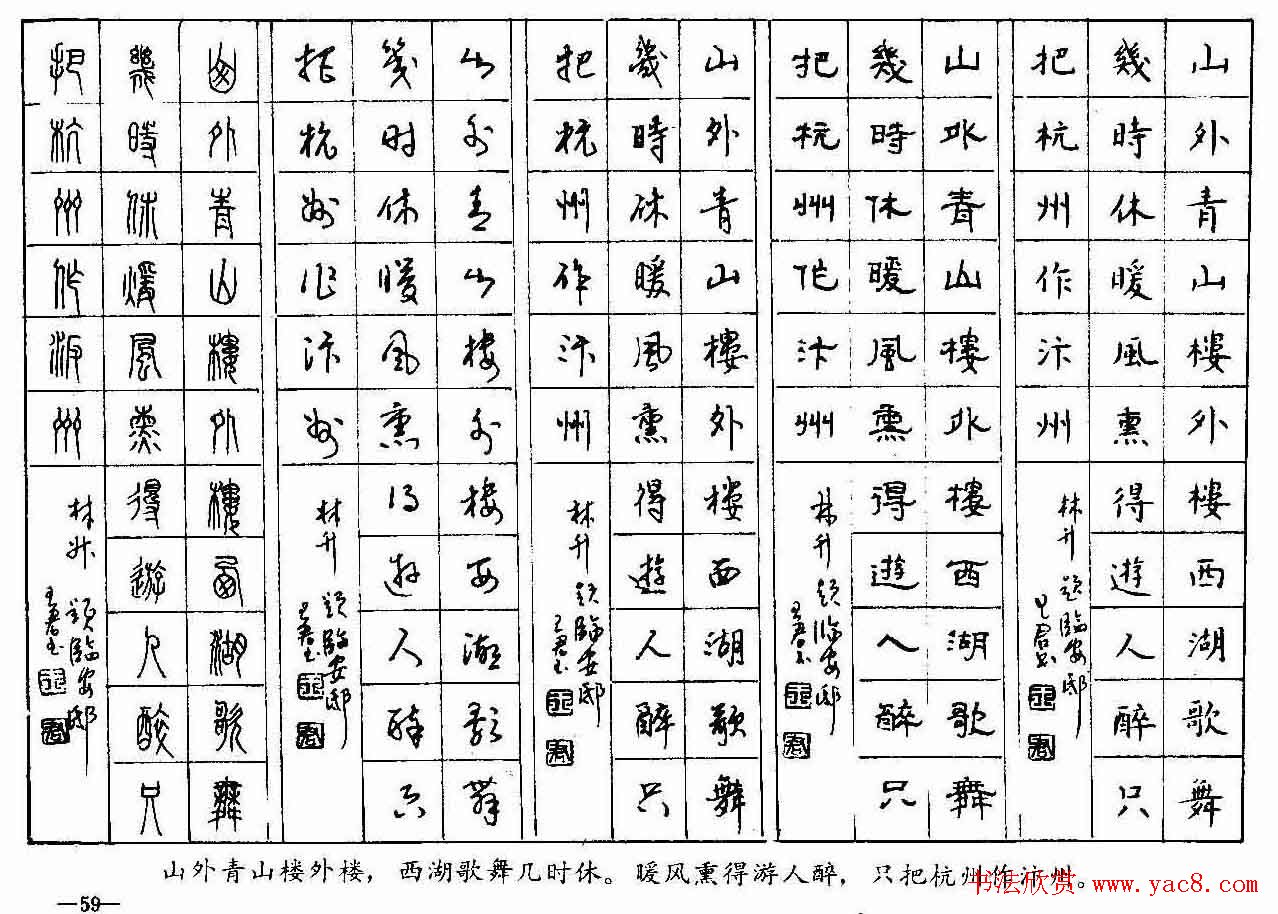 山外青山樓外樓西湖歌舞
幾時休暖風熏得遊人醉只
把杭州作汴州
林升 題臨安邸
山外青山樓外樓西湖歌舞
幾時休暖風熏得遊人醉只
把杭州作汴州
林升 題臨安邸
山外青山樓外樓西湖歌舞
幾時休暖風熏得遊人醉只
把杭州作汴州
林升 題臨安邸
山外青山樓外樓西湖歌舞
幾时休暖風熏得遊人醉只
把杭州作汴州
林升 題臨安邸
山外青山樓外樓西湖歌舞
幾時休煖風熏得遊人醉只
把杭州作汴州
林升 題臨安邸
山外青山楼外楼，西湖歌舞几时休。暖风熏得游人醉，只把杭州作汴州。
书法欣赏 www.yac8.com
—59—